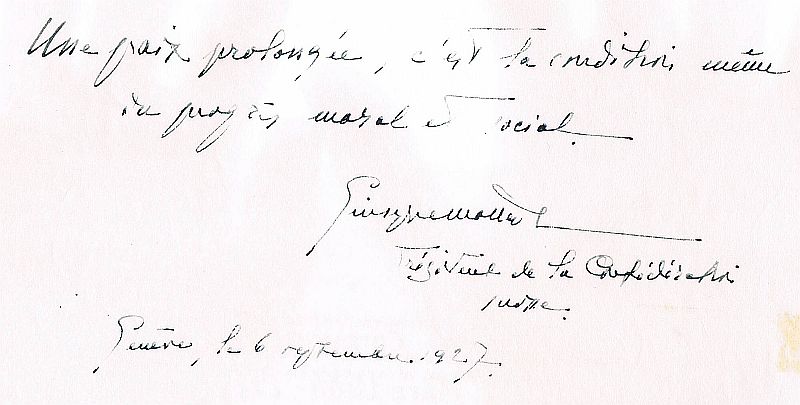 Une paix prolongée, c'est la condition même
du progrès moral et social.
Giuseppe Motta
Président de la Confédération
suisse.
Genève, le 6 septembre 1927.